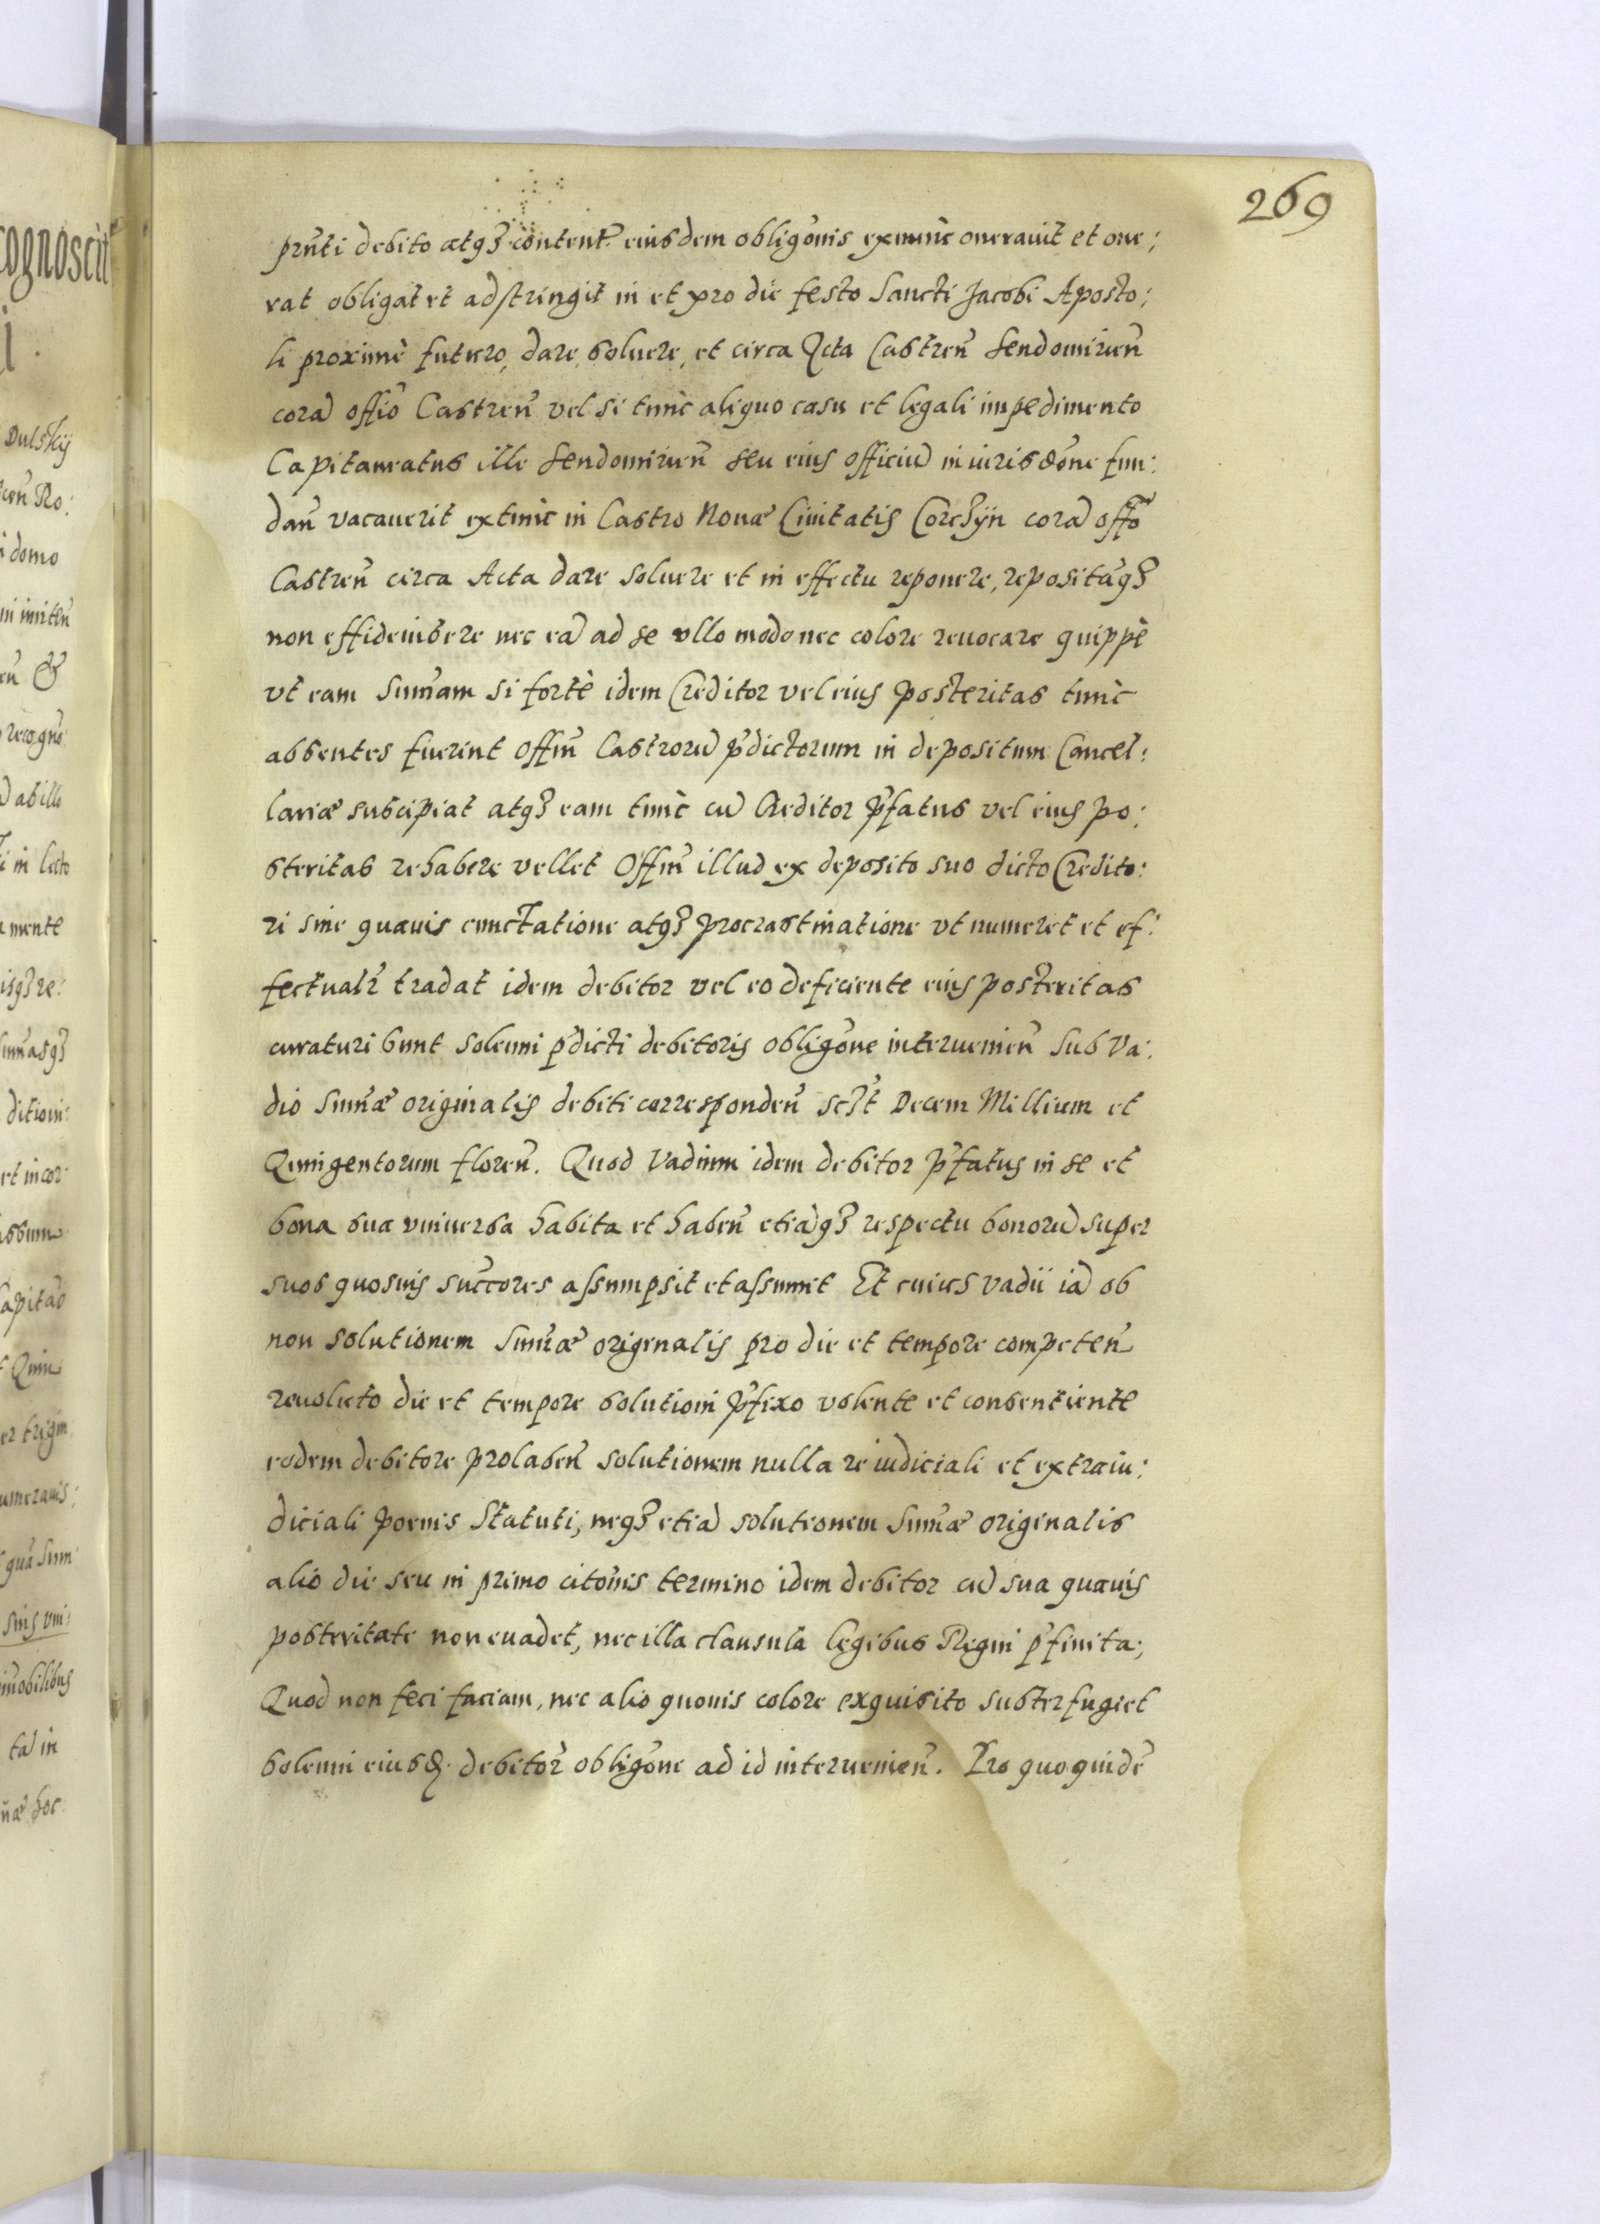 269
pñti debito atqȝ content: eiusdem obligõnis exnunc onerauit et one:
rat obligat et adstringit in et pro die festo Sancti Jacobi Aposto:
li proximè futuro, dare, soluere, et circa Acta Castreñ Sendomirieñ
corã offiõ Castreñ vel si tunc aliquo casu et legali impedimento
Capitaneatus ille Sendomirieñ seu eius officiũ in iurisdõne fun:
dañ vacauerit extunc in Castro Nouæ Ciuitatis Corchÿn corã offõ
Castreñ circa Acta dare soluere et in effectu reponere, repositãqȝ
non effidemibere nec eã ad se vllo modo nec colore reuocare quippè
vt eam Sum̃am si fortè idem Creditor vel eius posteritas tunc
absentes fuerint Offim̃ Castrorũ p̃dictorum in depositum Cancel:
lariæ suscipiat atqȝ eam tunc cũ Creditor p̃fatus vel eius po:
steritas rehabere vellet Offim̃ illud ex deposito suo dicto Credito:
ri sine quauis cunctatione atqȝ procrastinatione vt numeret et ef:
fectualr̃ tradat idem debitor vel eo deficiente eius posteritas
curaturi sunt solenni p̃dicti debitoris obligõne interuenieñ Sub Va:
dio Sum̃æ originalis debiti correspondeñ sc̃ȝt Decem Millium et
Quingentorum floreñ. Quod Vadium idem debitor p̃fatus in se et
bona sua vniuersa habita et habeñ etiãqȝ respectu bonorũ super
suos quosuis succ̃ores assumpsit et assumit Et cuius Vadii iã ob
non solutionem Sum̃æ originalis pro die et tempore competeñ
reuoluto die et tempore solutioni p̃fixo volente et consentiente
eodem debitore prolabeñ solutionem nulla re iudiciali et extraiu:
diciali poenis Statuti, neqȝ etiã solutionem Sum̃æ originalis
alio die seu in primo citõnis termino idem debitor cũ sua quauis
posteritate non euadet, nec illa clausula legibus Regni p̃finita;
Quod non feci faciam, nec alio quouis colore exquisito subterfugiet
solenni eiusd. debitor̃ obligõne ad id interuenieñ. Pro quo quidẽ